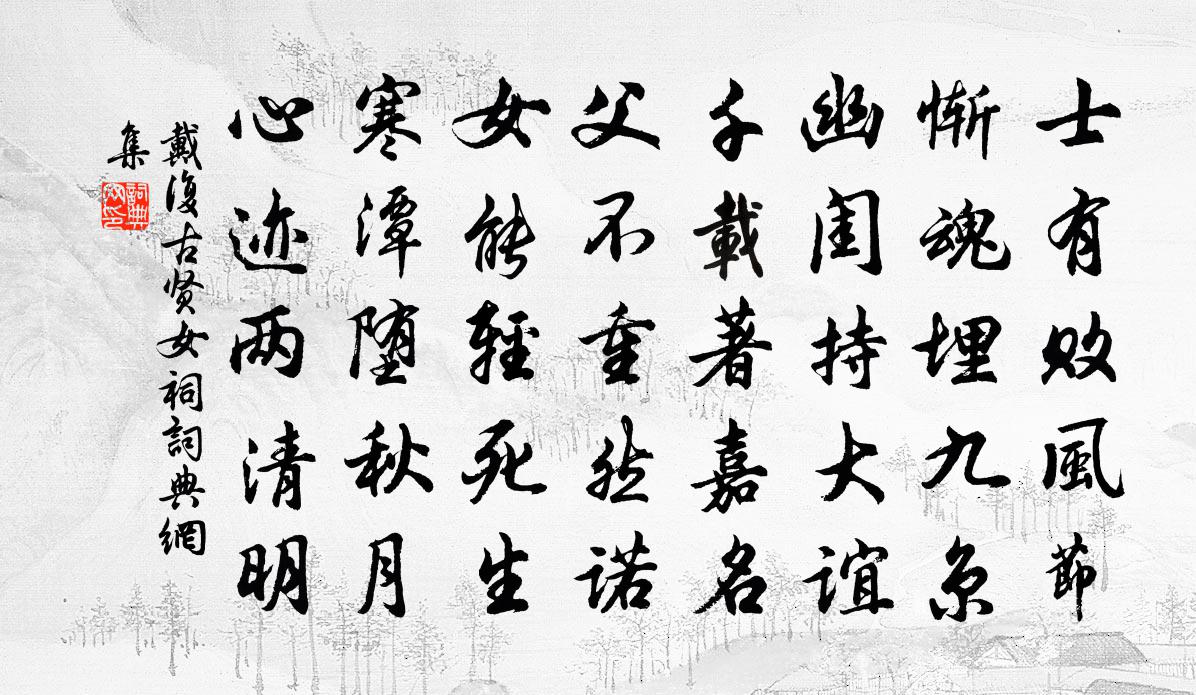 士有败風節
惭魂埋九京
幽闺持大谊
千載著嘉名
父不重然诺
女能輕死生
寒潭堕秋月
心迹两清明
戴復古贤女祠詞典網
集
詞典網印